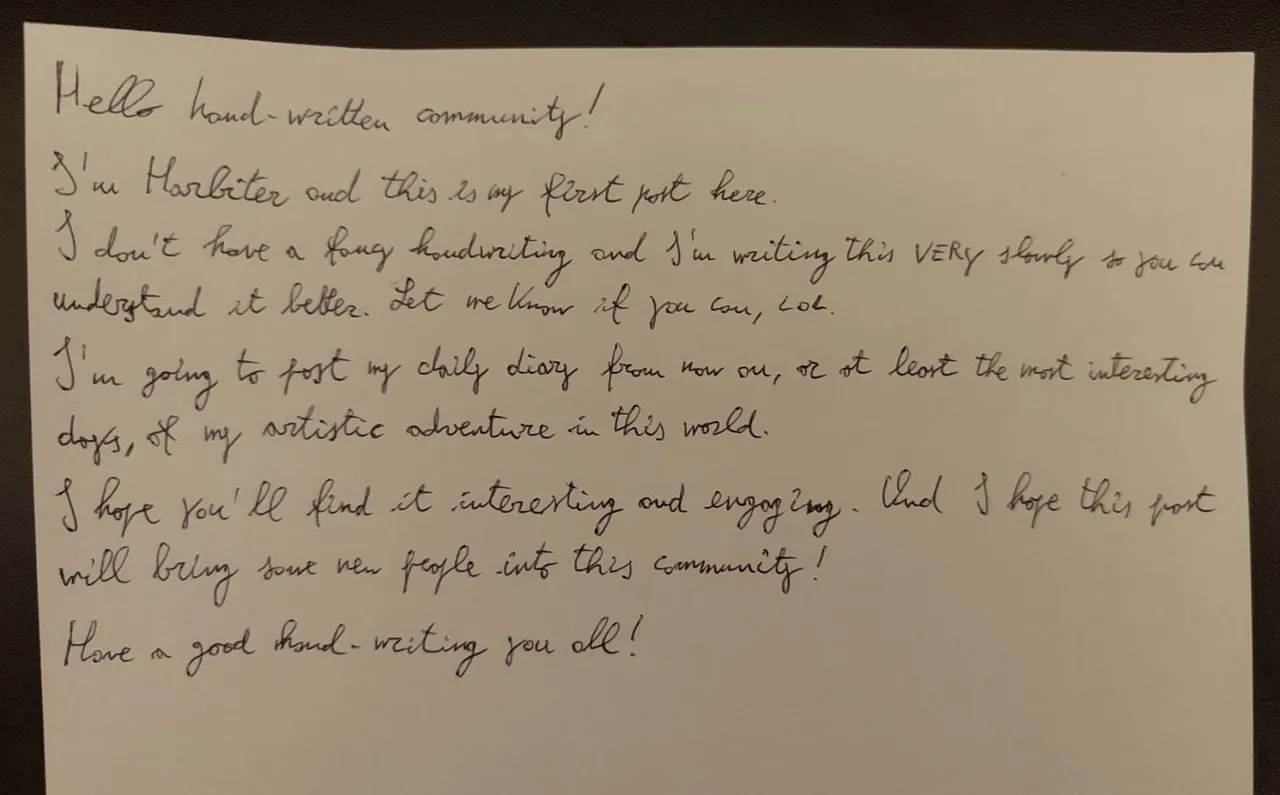 Hello hand-written community!
I'm Harbiter and this is my first post here.
I don't have a fancy handwriting and I'm writing this VERY slowly so you can
understand it better. Let me know if you can, LOL.
I'm going to post my daily diary from now on, or at least the most interesting
days, of my artistic adventure in this world.
I hope you'll find it interesting and engaging. And I hope this post
will bring some new people into this community!
Have a good hand-writing you all!